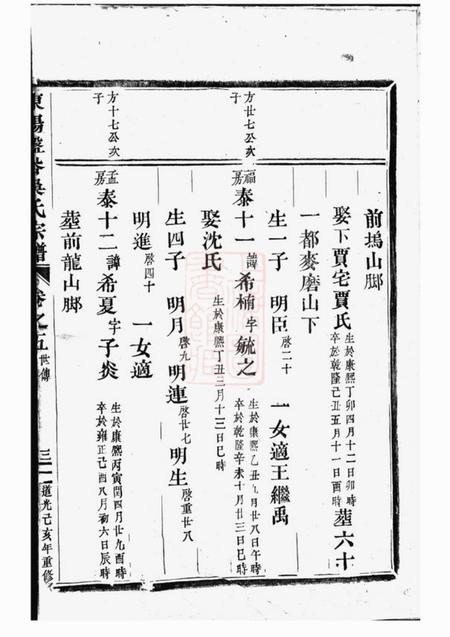 前塢山脚
娶下賈宅賈氏生於康熙丁卯四月十二日卯時卒於乾隆己丑五月十一日酉時塟六十
一都麥磨山下
生一子 明臣啓二十 一女適王繼禹
方廿七公次子
福房泰十一諱希楠字毓之生於康熙乙丑九月廿八日午時卒於乾隆辛未十月廿三日巳時
娶沈氏生於康熙丁丑三月十三日巳時
生四子 明月啓九明連啓廿七明生啓重廿八
明進啓四十 一女適
方十七公次子
孟房泰十二諱希夏字子炎生於康熙丙寅閏四月廿九酉時卒於雍正己酉八月初六日辰時
塟前龍山脚
東陽 吳氏宗譜 卷之五 世傳 三 道光己亥年重修